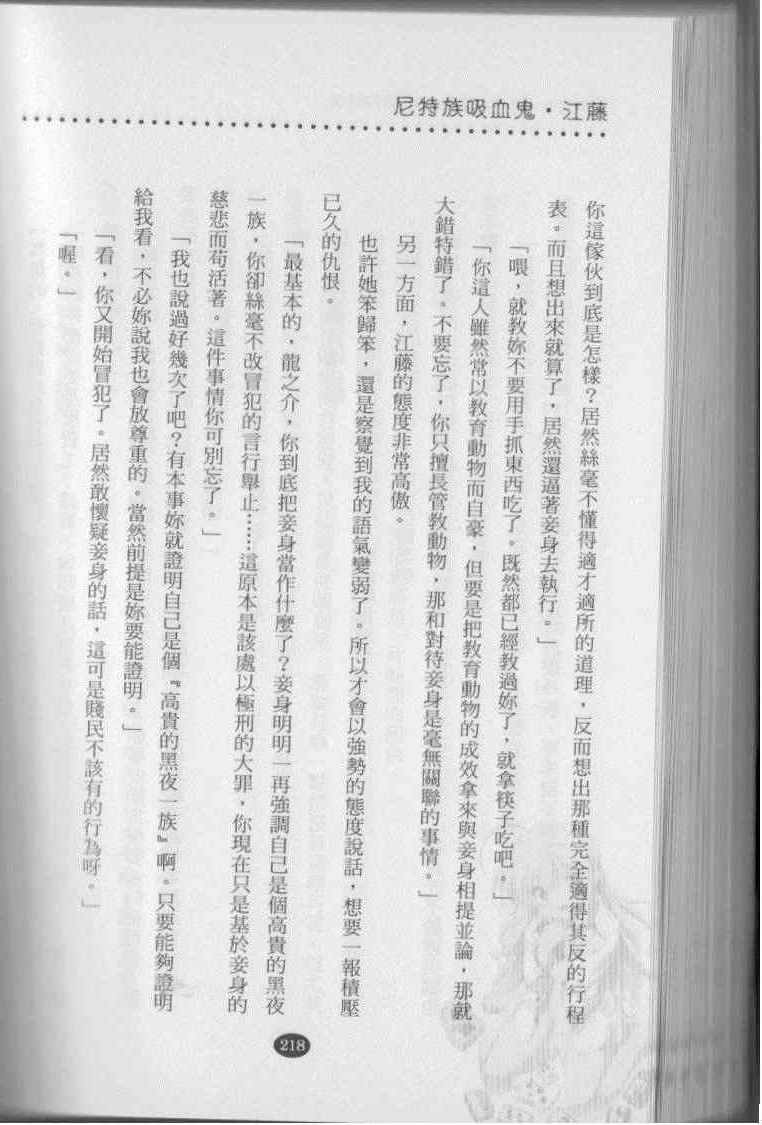 尼特族吸血鬼・江藤
你這傢伙到底是怎樣？居然絲毫不懂得適才適所的道理，反而想出那種完全適得其反的行程
表。而且想出來就算了，居然還逼著妾身去執行。」
「喂，就教妳不要用手抓東西吃了。既然都已經教過妳了，就拿筷子吃吧。」
「你這人雖然常以教育動物而自豪，但要是把教育動物的成效拿來與妾身相提並論，那就
大錯特錯了。不要忘了，你只擅長管教動物，那和對待妾身是毫無關聯的事情。」
另一方面，江藤的態度非常高傲。
也許她笨歸笨，還是察覺到我的語氣變弱了。所以才會以強勢的態度說話，想要一報積壓
已久的仇恨。
「最基本的，龍之介，你到底把妾身當作什麼了？妾身明明一再強調自己是個高貴的黑夜
一族，你卻絲毫不改冒犯的言行舉止……這原本是該處以極刑的大罪，你現在只是基於妾身的
慈悲而苟活著。這件事情你可別忘了。」
「我也說過好幾次了吧？有本事妳就證明自己是個『高貴的黑夜一族』啊。只要能夠證明
給我看，不必妳說我也會放尊重的。當然前提是妳要能證明。」
「看，你又開始冒犯了。居然敢懷疑妾身的話，這可是賤民不該有的行為呀。」
「喔。」
218